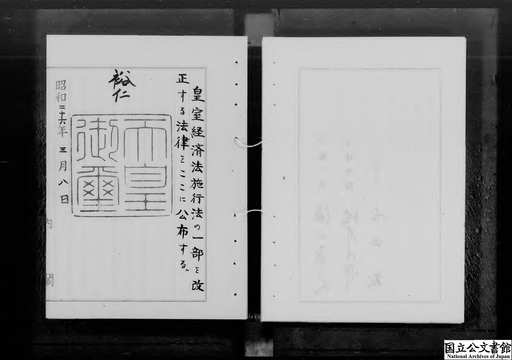 皇室経済法施行法の一部を改
正する法律をここに公布する。
裕仁
天皇
御璽
昭和二十六年三月八日
内閣
国立公文書館
National Archives of Japan